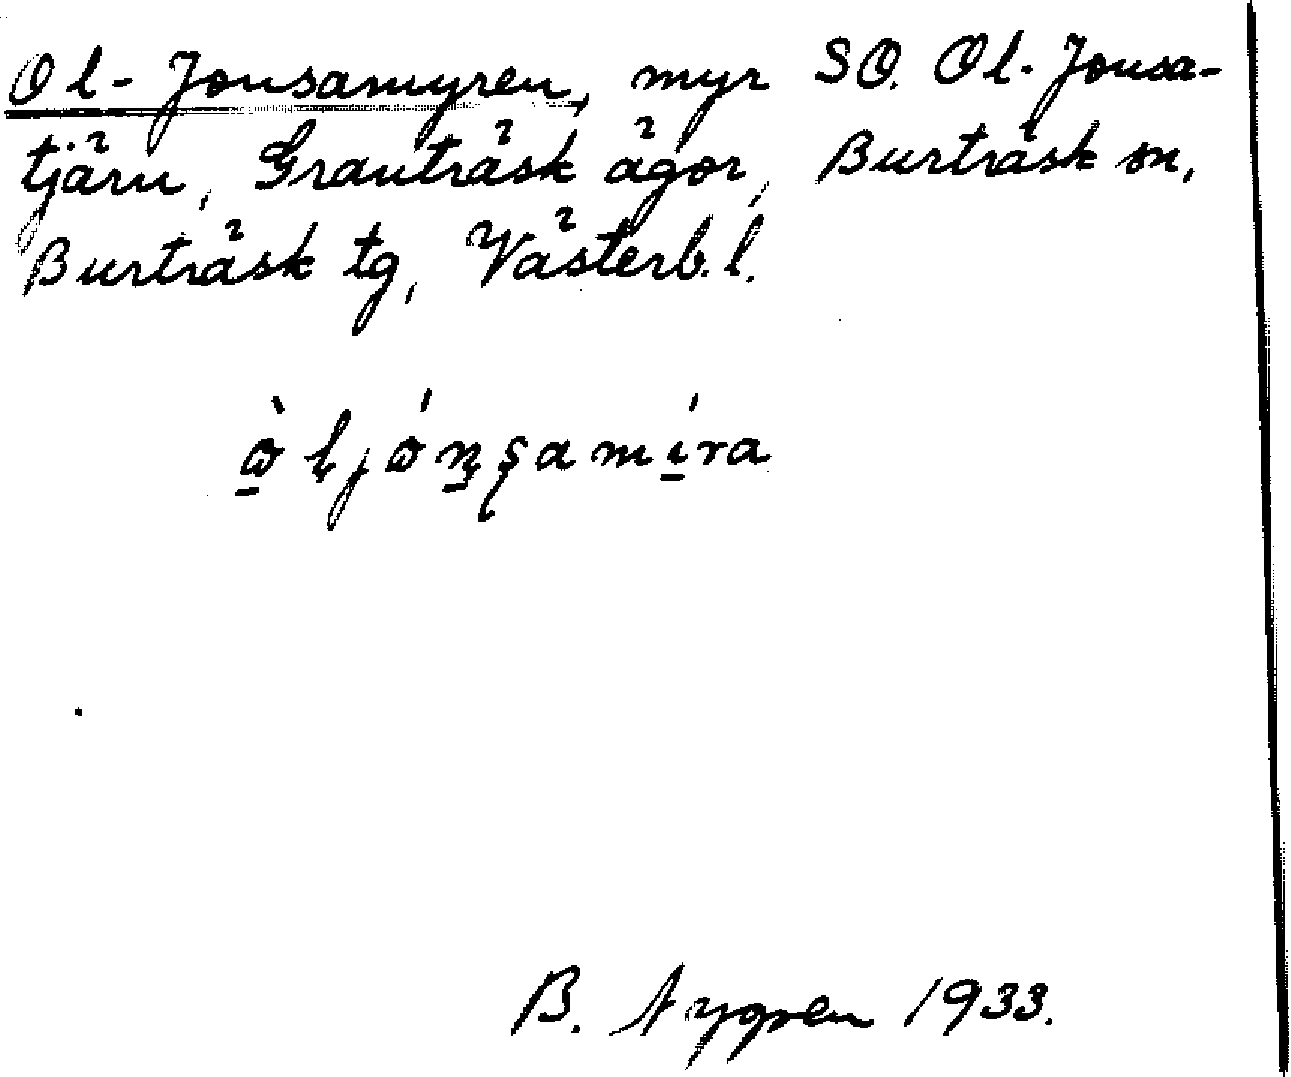 Ol-Jonsamyren, myr SO. Ol-Jonsa-
tjärn, Granträsk ägor, Burträsk sn,
Burträsk tg, Västerb. l.
B. Nygren 1933.